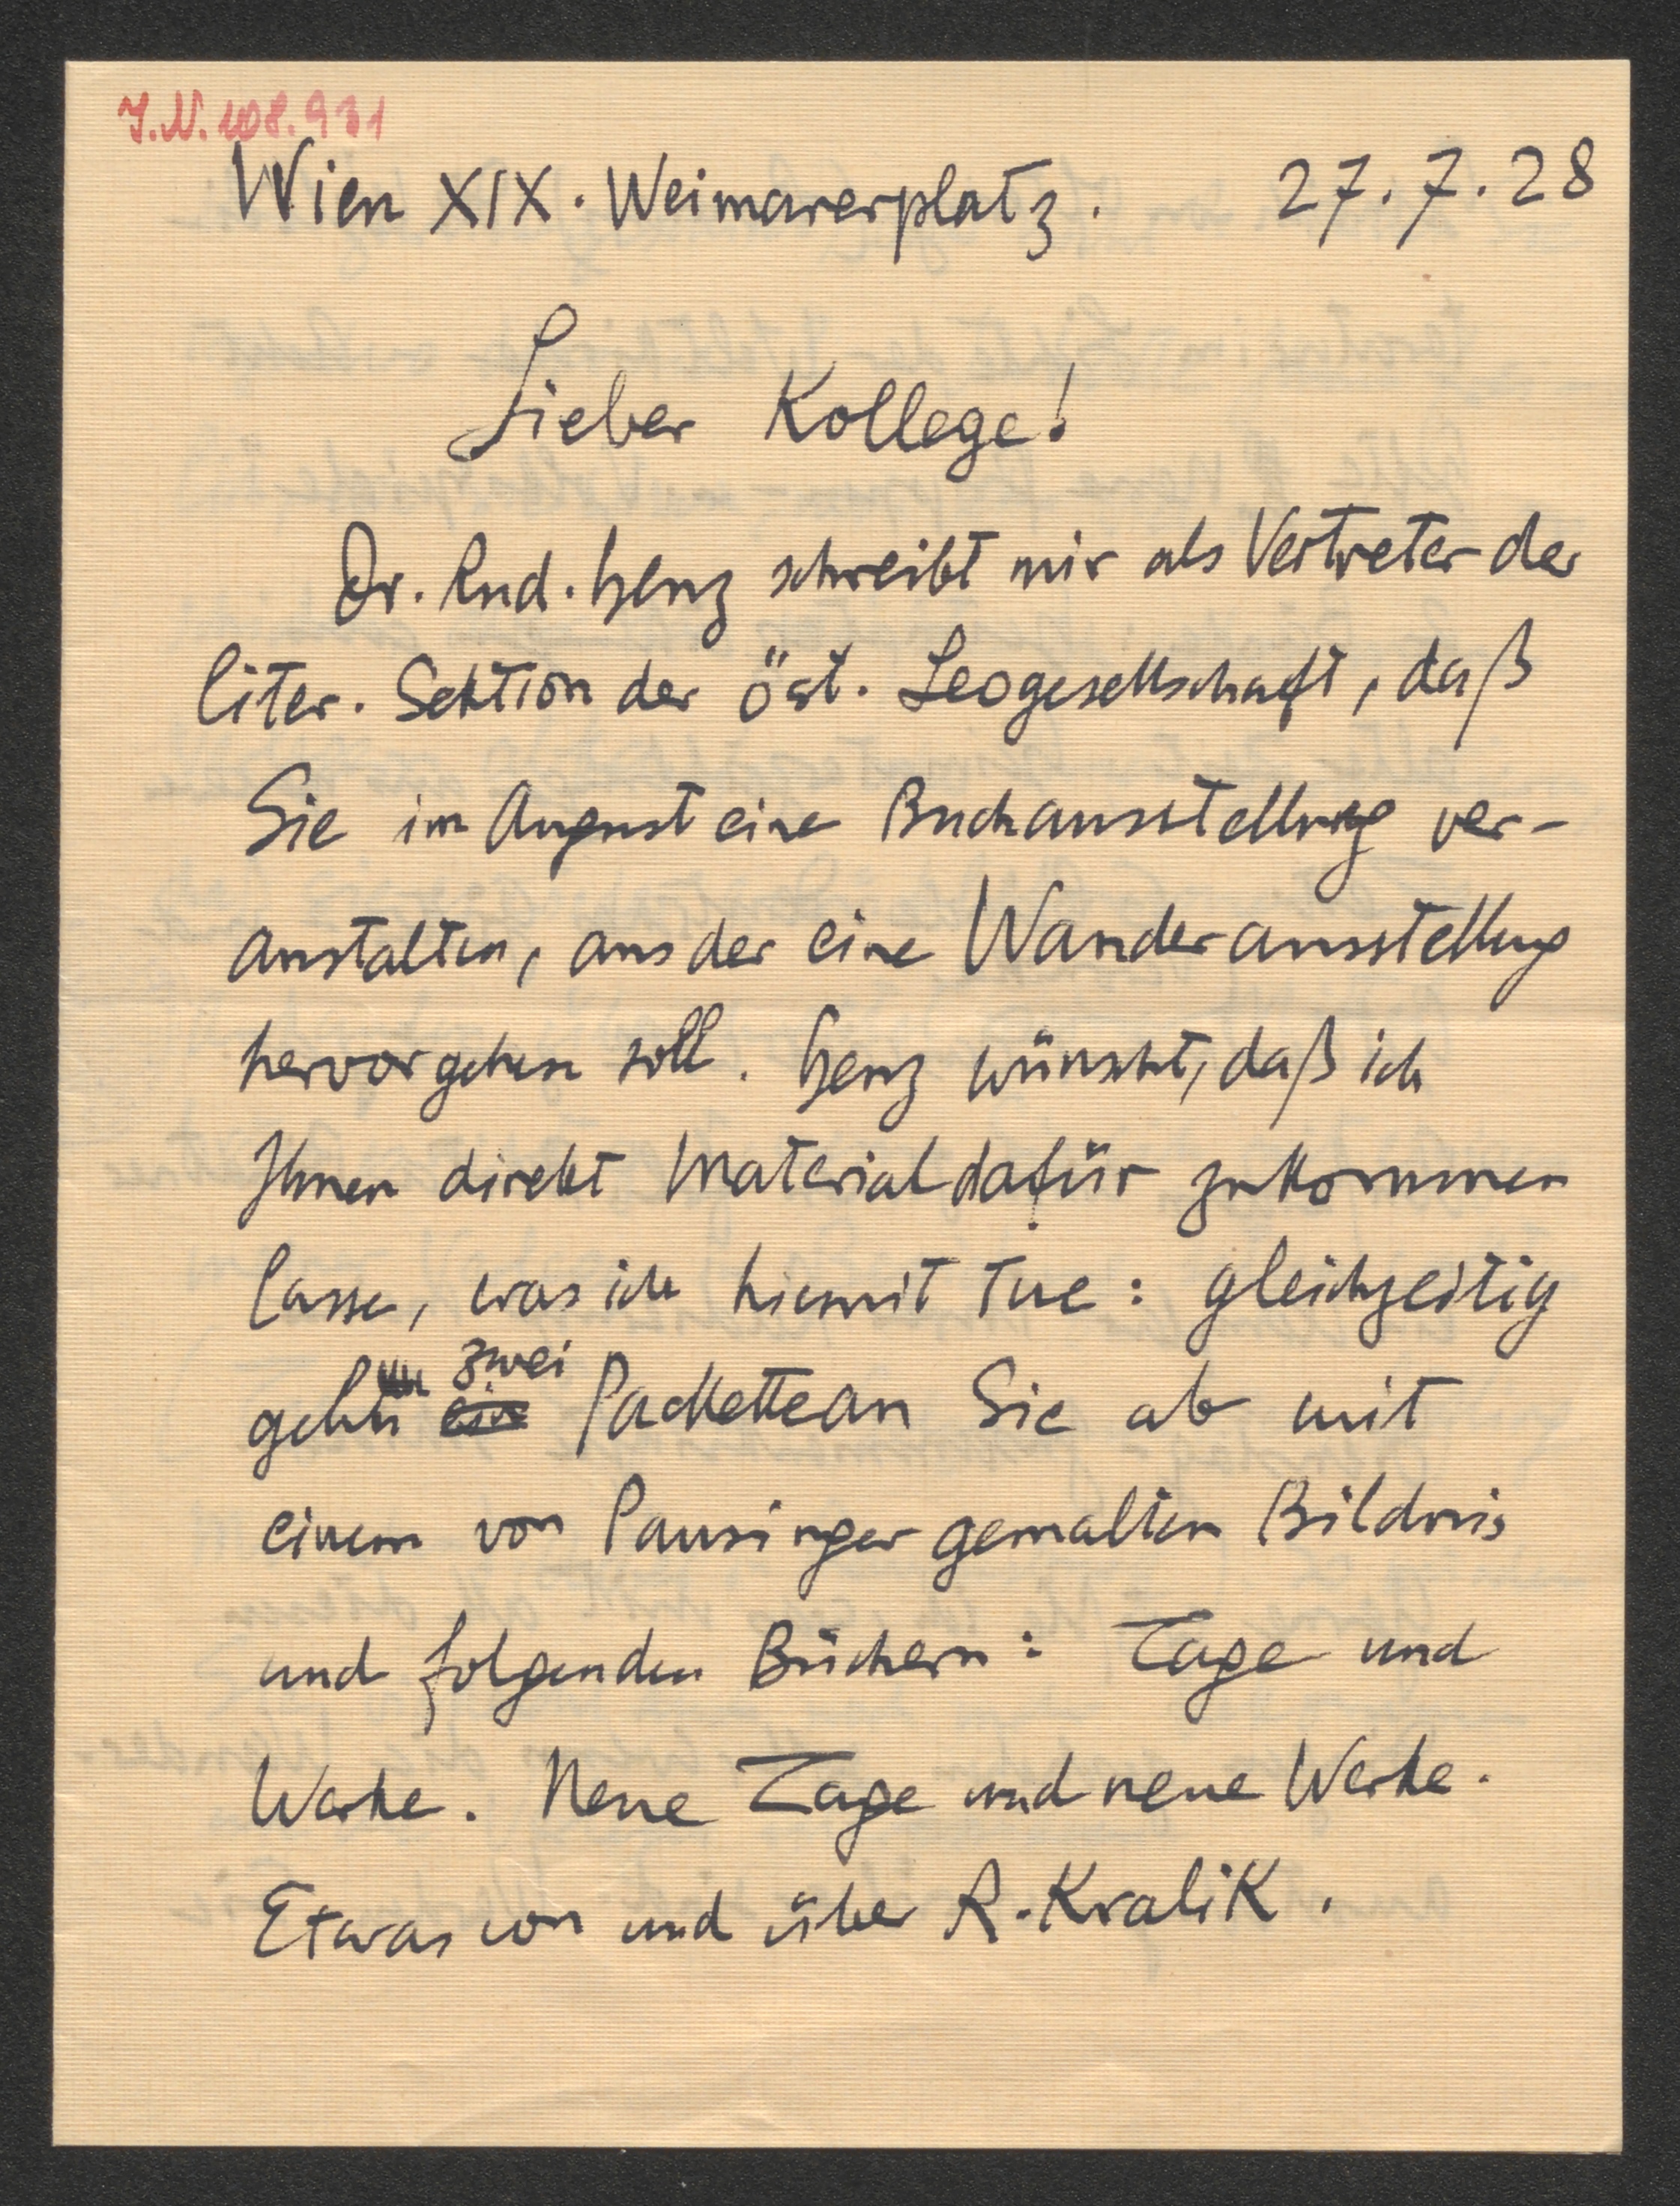 I.N. 108.931
Wien XIX. Weimarerplatz. 27.7.28
Lieber Kollege!
Dr. Rud. Henz schreibt mir als Vertreter der
liter. Sektion der öst. Leogesellschaft, daß
Sie im August eine Buchausstellung ver-
anstalten, aus der eine Wanderausstellung
hervorgehen soll. Henz wünscht, daß ich
Ihnen direkt Material dafür zukommen
lasse, was ich hiemit tue: gleichzeitig
zwei
gehn ein Packette an Sie ab mit
einem von Pausinger gemalten Bildnis
und folgenden Büchern: Tage und
Werke. Neue Tage und neue Werke.
Etwas von und über R. Kralik.